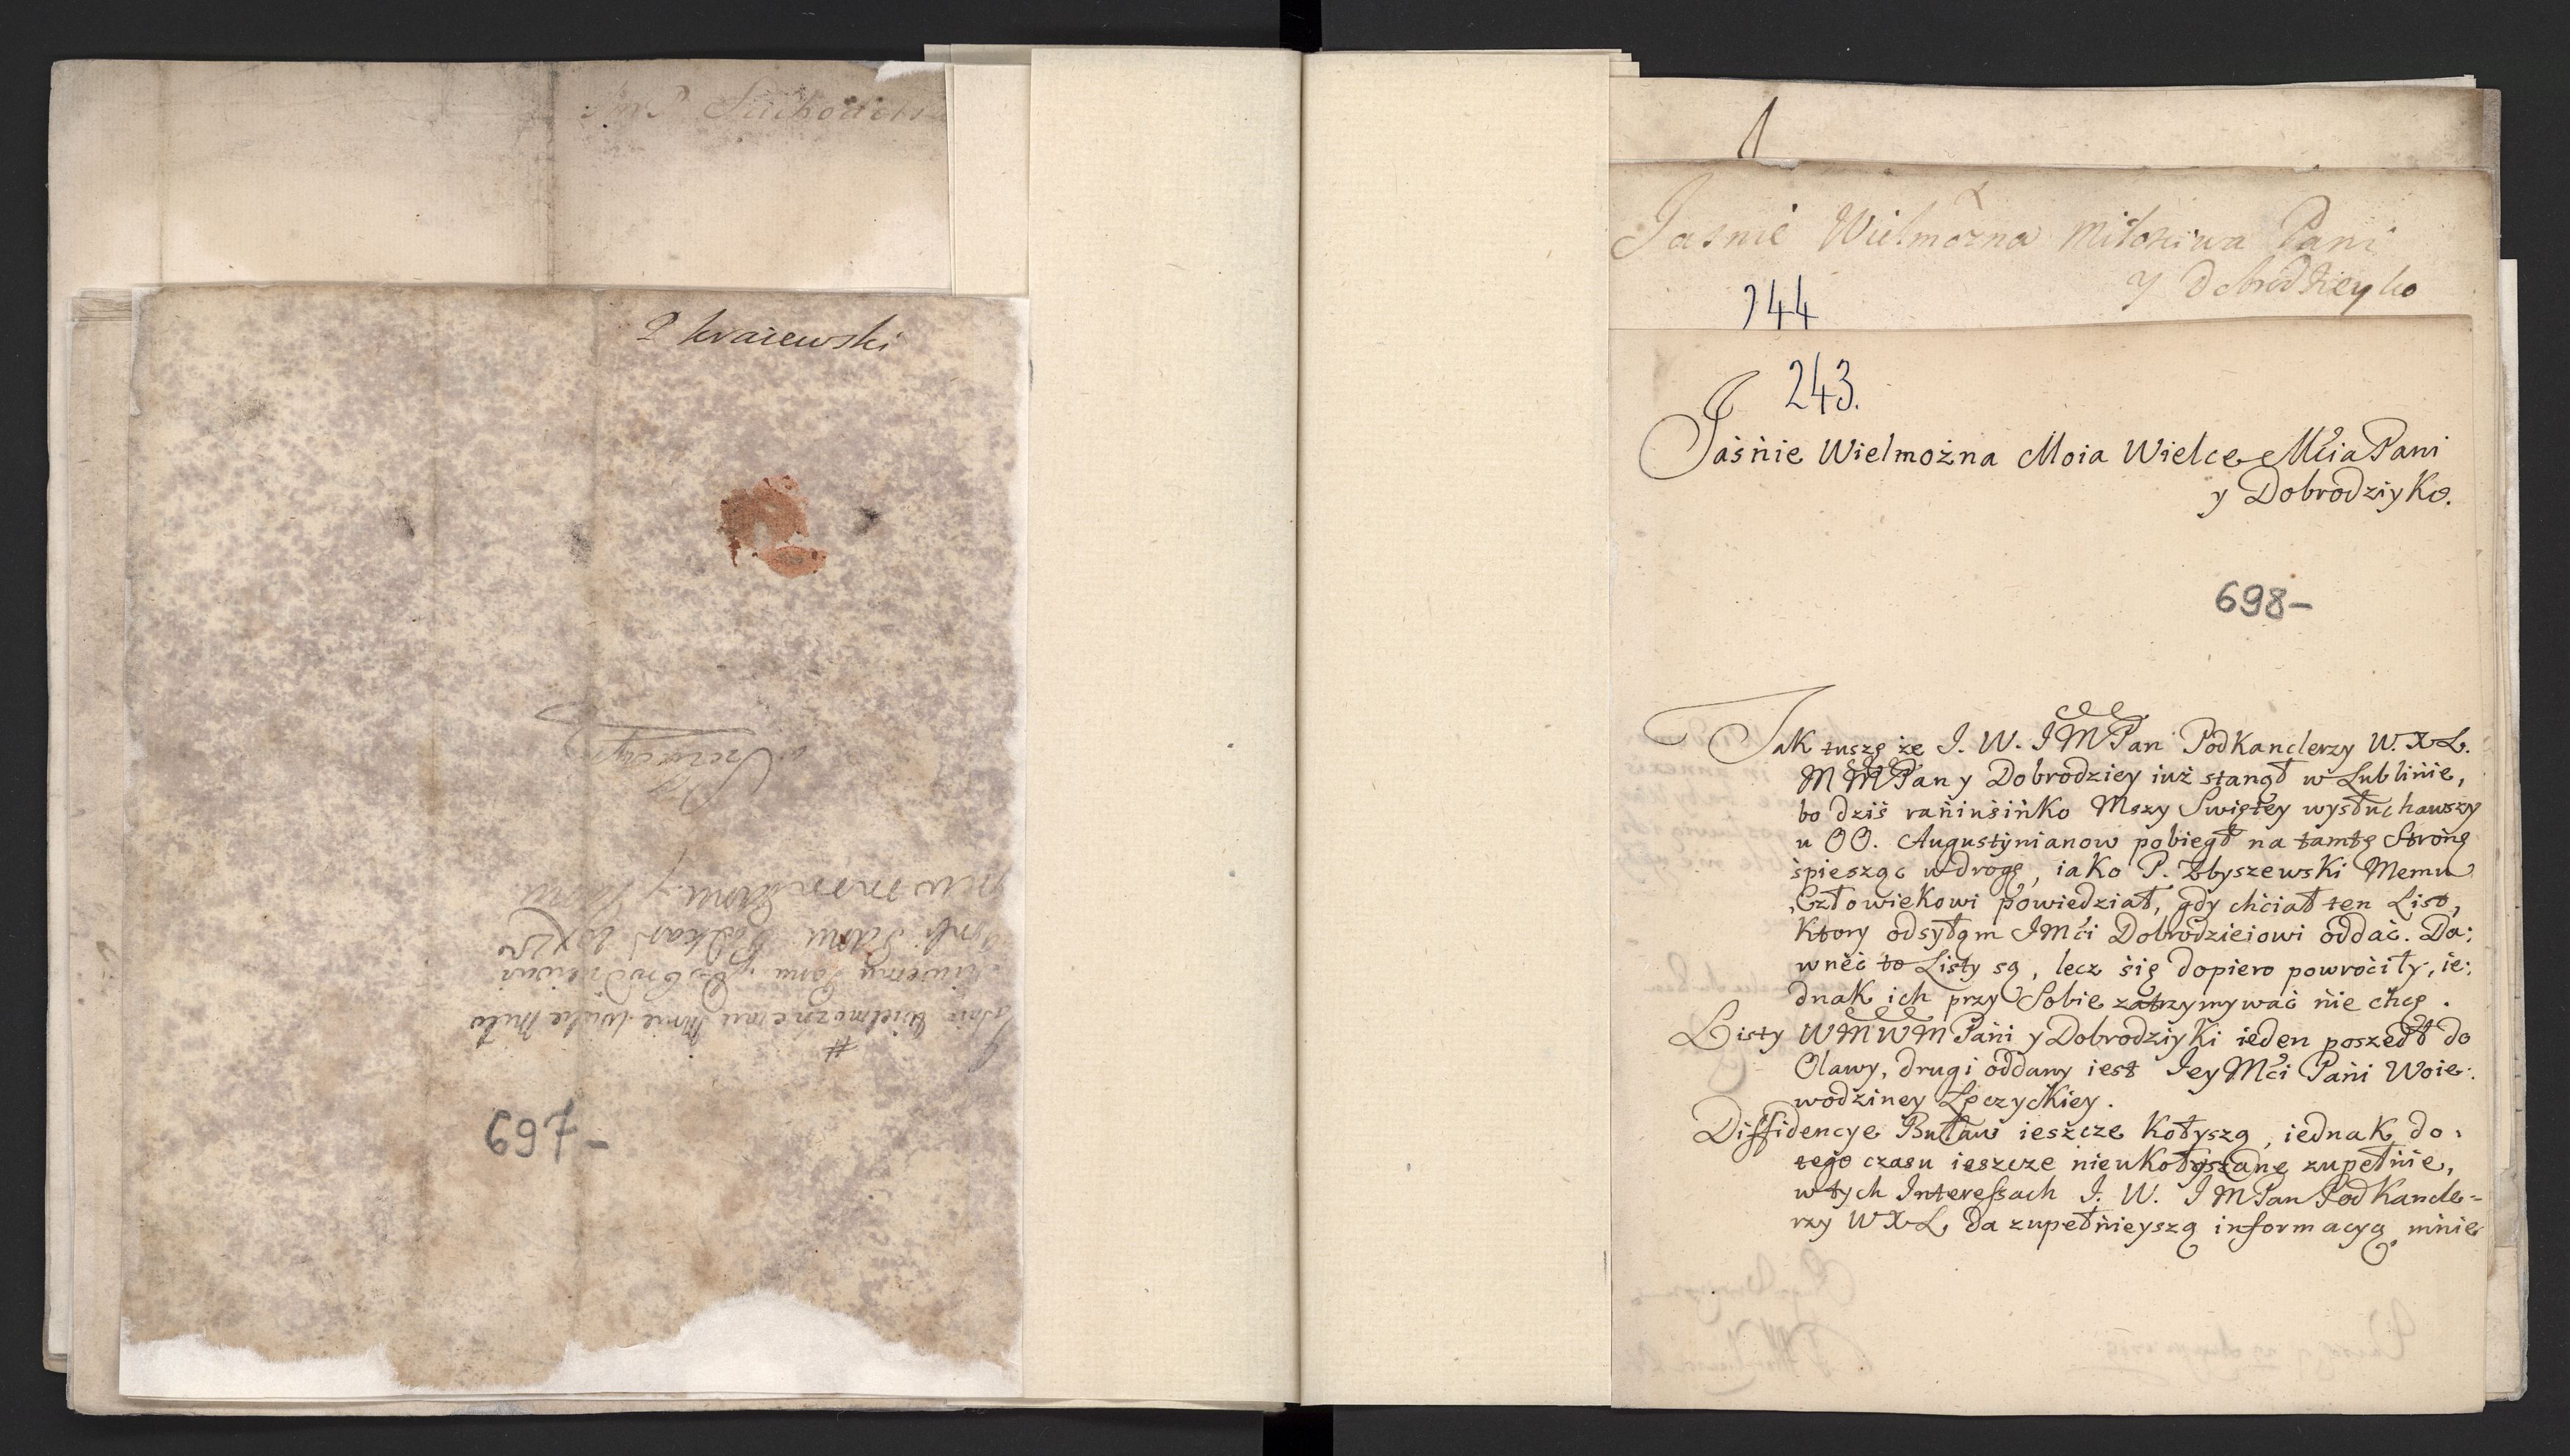 P Kraiewski
w Szereszewie
Pana y Brata
Podkan WXL
sciwemu Panu y Dobrodzieiowi
Jaśnie Wielmoznemu Mnie Wielce Miło
#
697-
Jasnie Wielmozna Miłosciwa Pani
y Dobrodzieyko
244
243.
Jaśnie Wielmożna Moia Wielce Mścia Pani
y Dobrodziyko.
698-
Tak tuszę że J. W. JMPan Podkanclerzy W.X.L.
MMPan y Dobrodziey iuż stanął w Lublinie,
bo dziś raniusińko Mszy Swiętey wysłuchawszy
u OO. Augustynianow pobiegł na tamtę Stronę
śpiesząc w drogę, iako P. Zbyszewski Memu
Człowiekowi powiedział, gdy chciał ten List,
Ktory odsyłam JMći Dobrodzieiowi oddać. Da:
wneć to Listy są, lecz się dopiero powrociły, ie:
dnak ich przy Sobie zatrzymywać nie chcę.
Listy WMWM Pani y Dobrodziyki ieden poszedł do
Olawy, drugi oddany iest JeyMći Pani Woie:
wodziney Lęczyckiey.
Diffidencye Buław ieszcze Kołyszą, iednak do
tego czasu ieszcze nieukołysane zupełnie,
w tych Interessach J. W. JMPan Podkancle-
rzy WXL da zupełnieyszą informacyą mnie